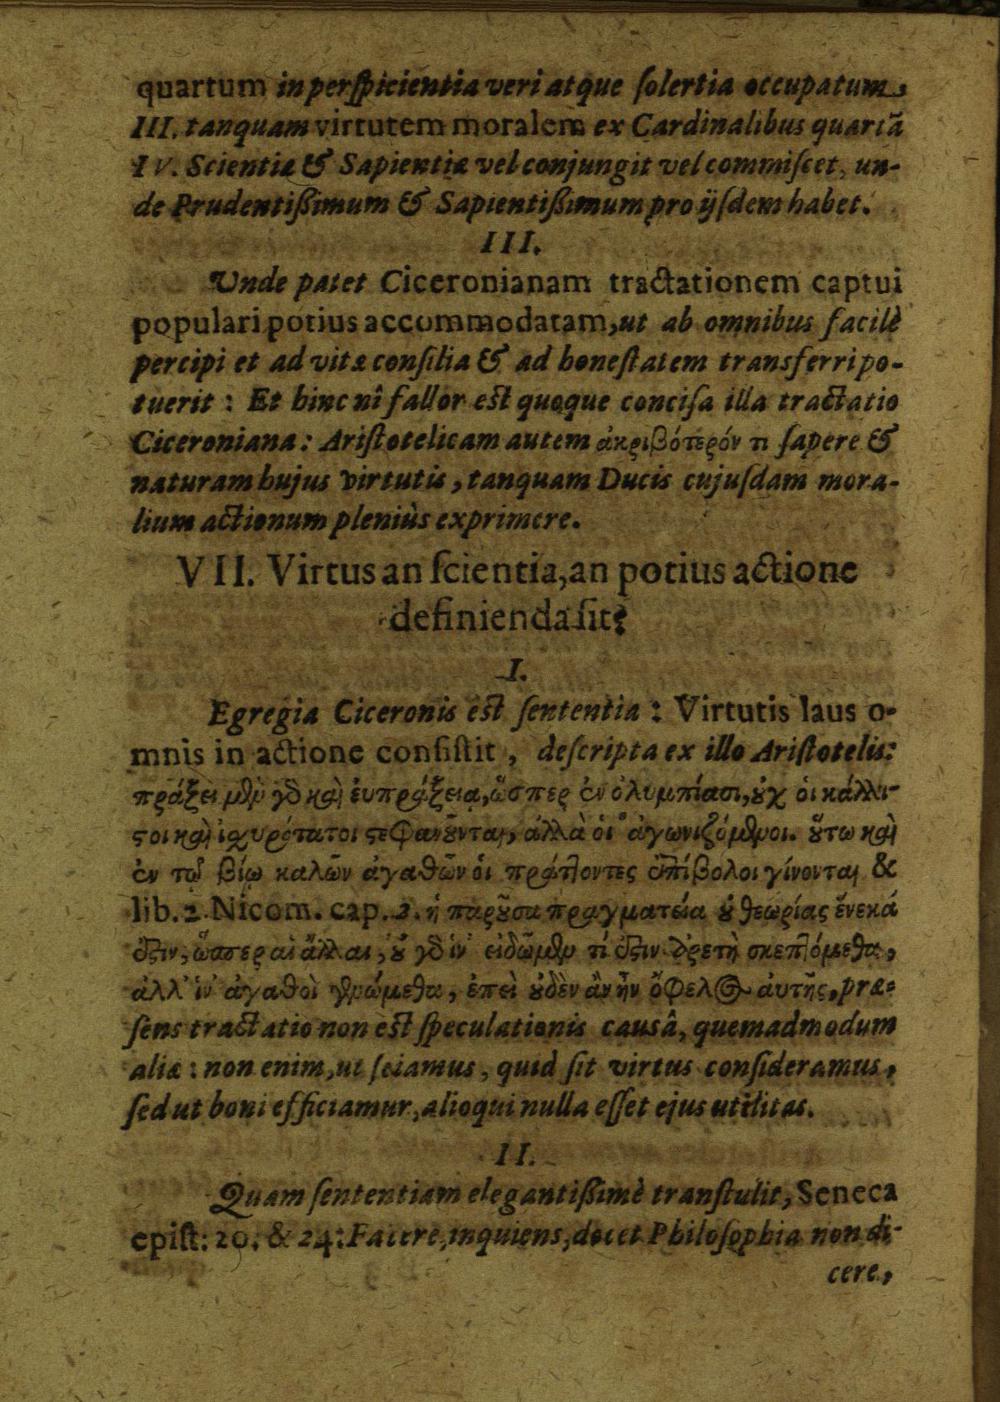 quartum in perſpicientia veri atque ſolertia occupatum,
III. tanquam virtutem moralem ex Cardinalibus quartã
IV. Scientiæ & Sapientiæ vel conjungit vel commiſcet, un-
de Prudentißimum & Sapientißimum pro ijſdem habet.
III.
Unde patet Ciceronianam tractationem captui
populari potius accommodatam, ut ab omnibus facilè
percipi et ad vitæ conſilia & ad honeſtatem transferri po-
tuerit: Et hinc nî fallor est quoque conciſa illa tractatio
Ciceroniana: Ariſtotelicam autem ἀκριβότερόν τι ſapere &
naturam hujus virtutis, tanquam Ducis cujuſdam mora-
lium actionum pleniùs exprimere.
VII. Virtus an ſcientia, an potius actione
definienda ſit?
I.
Egregia Ciceronis est ſententia: Virtutis laus o-
mnis in actione conſiſtit, deſcripta ex illo Ariſtotelis:
πράξει μὲν γὸ καὶ ἐυπράξεια, ὥσπερ ἐν ὀλυμπίασι, οὐχ οἱ κάλλι-
ςοι καὶ ἰχυρότατοι ςεφανοῦνται, ἀλλὰ οἱ ἀγωνιζόμενοι. οὕτω καὶ
ἐν τῷ βίῳ καλῶν ἀγαθῶν οἱ πράττοντες ἐπίβολοι γίνονται &
lib. 2. Nicom. cap. 2. ἡ παροῦσα πραγματεία οὐ θεωρίας ἕνεκά
ἐςιν, ὥσπερ αἱ ἄλλαι, οὐ γὸ ἵν' εἰδῶμεν τί ἐςιν ἀρετὴ σκεπτόμεθα,
ἀλλ' ἵν' ἀγαθοὶ γενώμεθα, ἐπεὶ οὐδὲν ἂν ἦν ὄφελος αὐτῆς, præ-
ſens tractatio non est ſpeculationis causâ, quemadmodum
aliæ: non enim, ut ſciamus, quid ſit virtus conſideramus,
ſed ut boni efficiamur, alioqui nulla eſſet ejus utilitas.
II.
Quam ſententiam elegantißimè tranſtulit, Seneca
epiſt: 20. & 24: Facere, inquiens, docet Philoſophia non di-
cere,